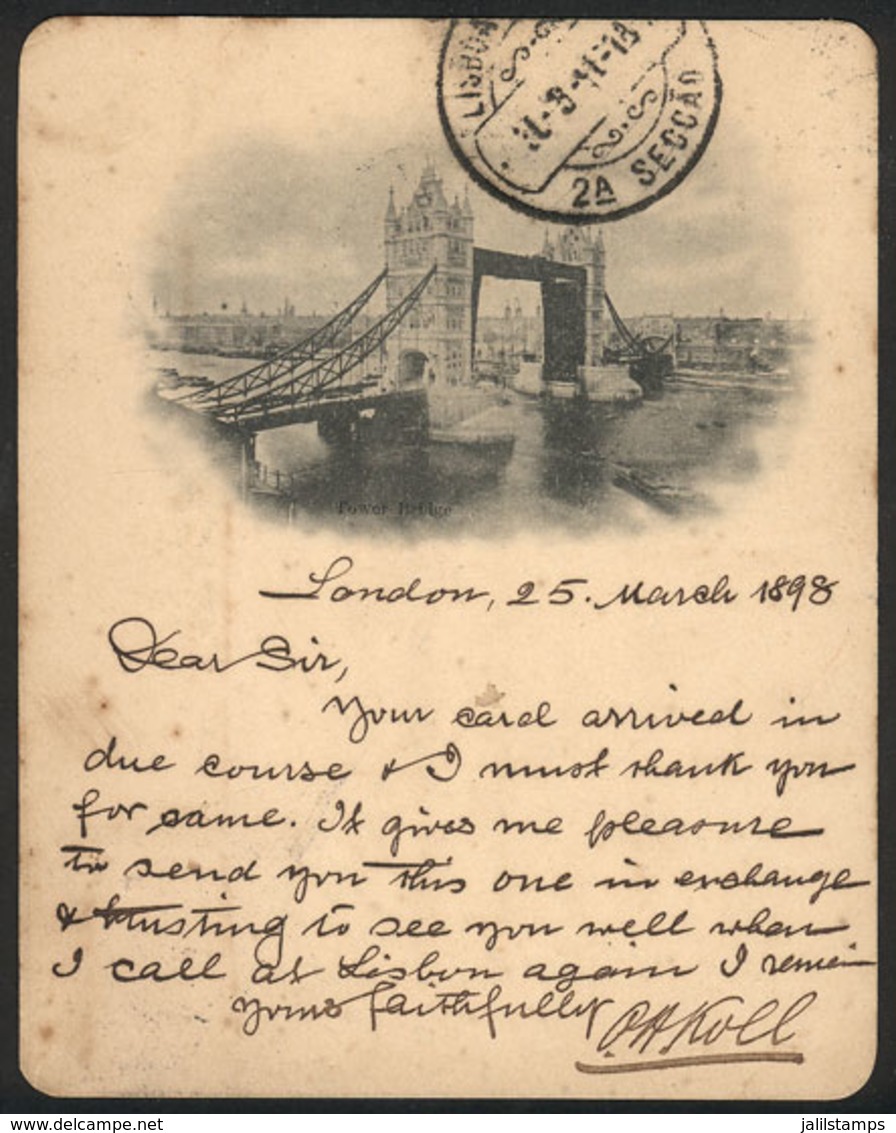 LISBOA
2A SECCÃO
Tower Bridge
London, 25. March 1898
Dear Sir,
Your card arrived in
due course & I must thank you
for same. It gives me pleasure
to send you this one in exchange
& trusting to see you well when
I call at Lisbon again I remain
yours faithfully
Koll
jalilstamps